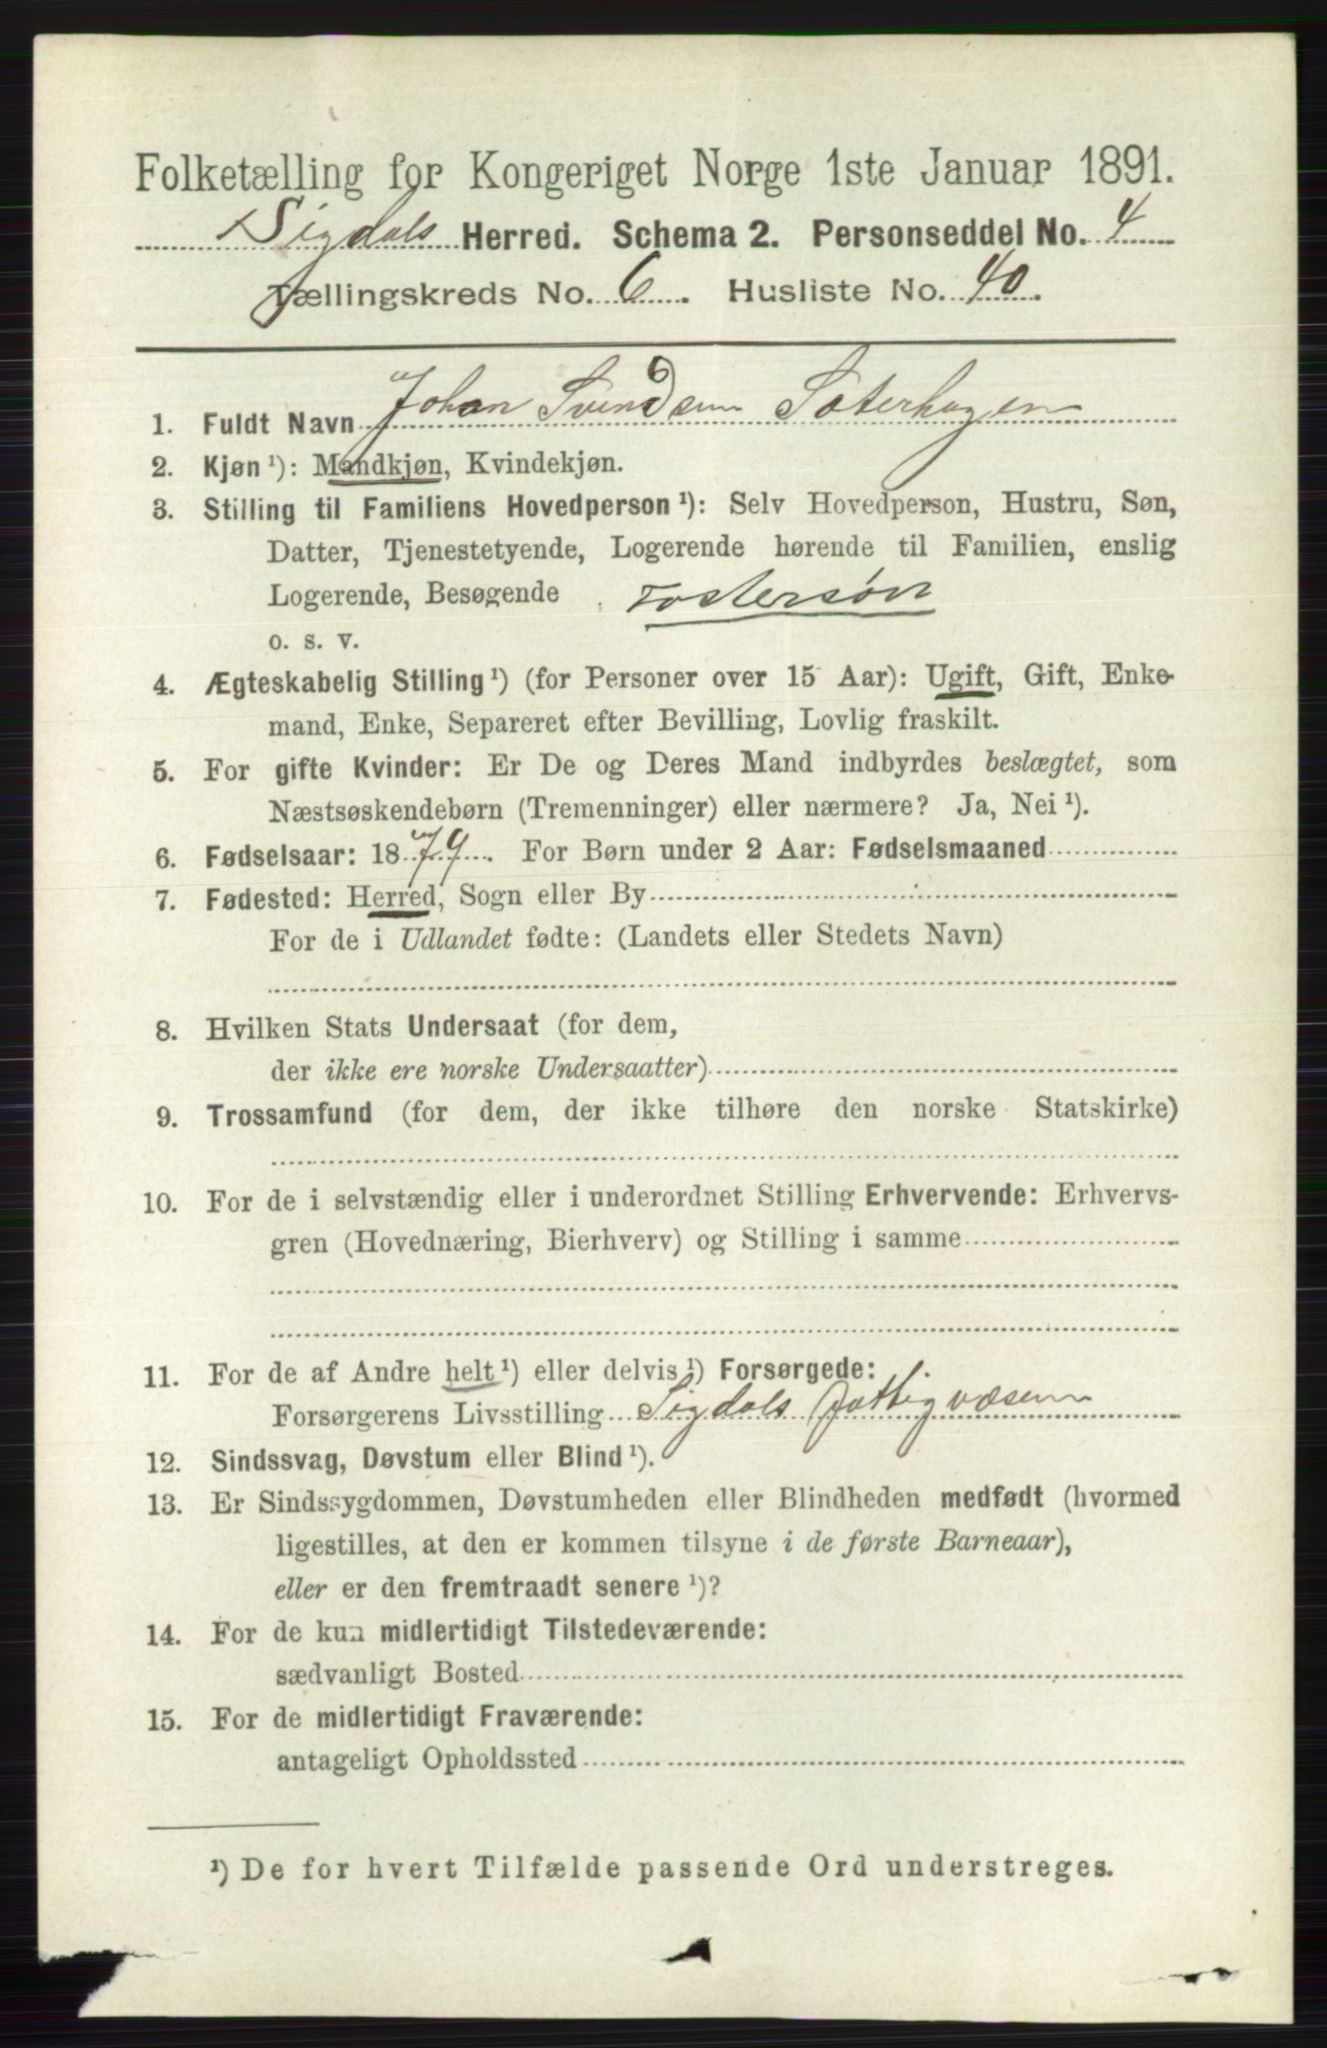 Folketælling for Kongeriget Norge 1ste Januar 1891.
Sigdals Herred. Schema 2. Personseddel No. 4
Tællingskreds No. 6. Husliste No. 40.
1. Fuldt Navn Johan Svendsen Sæterhagen
2. Kjøn¹): Mandkjøn, Kvindekjøn.
3. Stilling til Familiens Hovedperson¹): Selv Hovedperson, Hustru, Søn,
Datter, Tjenestetyende, Logerende hørende til Familien, enslig
Logerende, Besøgende Fostersøn
o. s. v.
4. Ægteskabelig Stilling¹) (for Personer over 15 Aar): Ugift, Gift, Enke-
mand, Enke, Separeret efter Bevilling, Lovlig fraskilt.
5. For gifte Kvinder: Er De og Deres Mand indbyrdes beslægtet, som
Næstsøskendebørn (Tremenninger) eller nærmere? Ja, Nei¹).
6. Fødselsaar: 1879. For Børn under 2 Aar: Fødselsmaaned
7. Fødested: Herred, Sogn eller By
For de i Udlandet fødte: (Landets eller Stedets Navn)
8. Hvilken Stats Undersaat (for dem,
der ikke ere norske Undersaatter)
9. Trossamfund (for dem, der ikke tilhøre den norske Statskirke)
10. For de i selvstændig eller i underordnet Stilling Erhvervende: Erhvervs-
gren (Hovednæring, Bierhverv) og Stilling i samme
11. For de af Andre helt¹) eller delvis¹) Forsørgede:
Forsørgerens Livsstilling Sigdals Fattigvæsen
12. Sindssvag, Døvstum eller Blind¹).
13. Er Sindssygdommen, Døvstumheden eller Blindheden medfødt (hvormed
ligestilles, at den er kommen tilsyne i de første Barneaar),
eller er den fremtraadt senere¹)?
14. For de kun midlertidigt Tilstedeværende:
sædvanligt Bosted
15. For de midlertidigt Fraværende:
antageligt Opholdssted
¹) De for hvert Tilfælde passende Ord understreges.